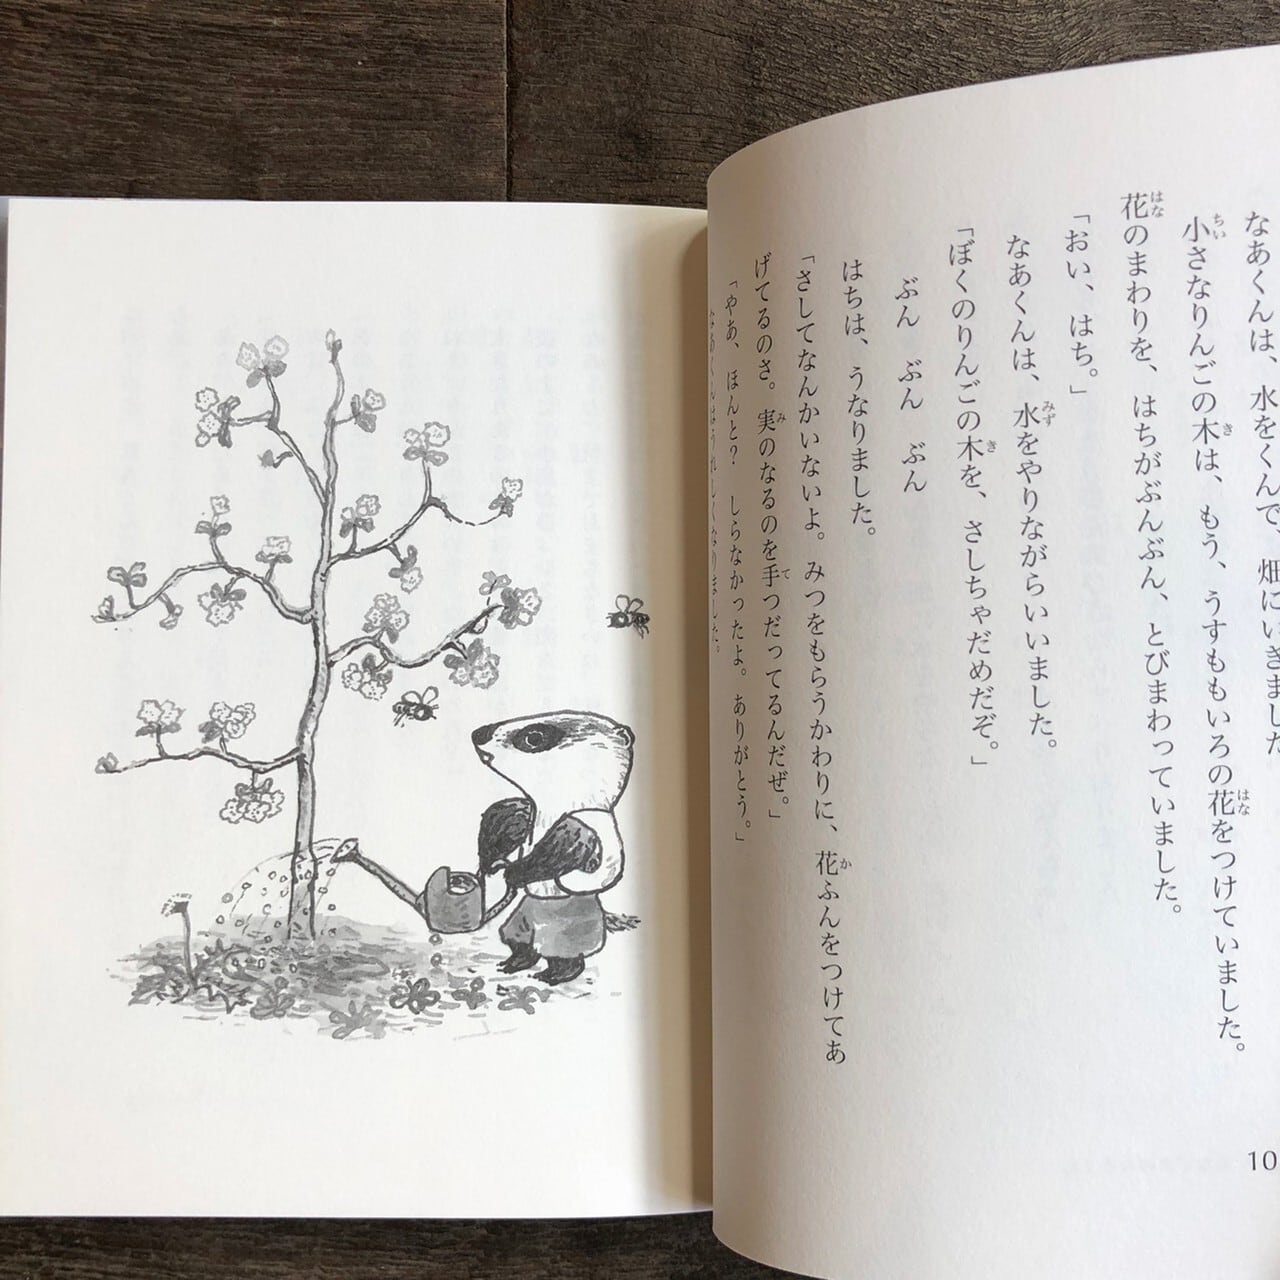 なあくんは、水をくんで、畑にいきました
小さなりんごの木は、もう、うすももいろの花をつけていました。
花のまわりを、はちがぶんぶん、とびまわっていました。
「おい、はち。」
なあくんは、水をやりながらいいました。
「ぼくのりんごの木を、さしちゃだめだぞ。」
ぶん ぶん ぶん
はちは、うなりました。
「さしてなんかいないよ。みつをもらうかわりに、花ふんをつけてあ
げてるのさ。実のなるのを手つだってるんだぜ。」
「やあ、ほんと? しらなかったよ。ありがとう。」
なあくんはうれしくなりました。
10